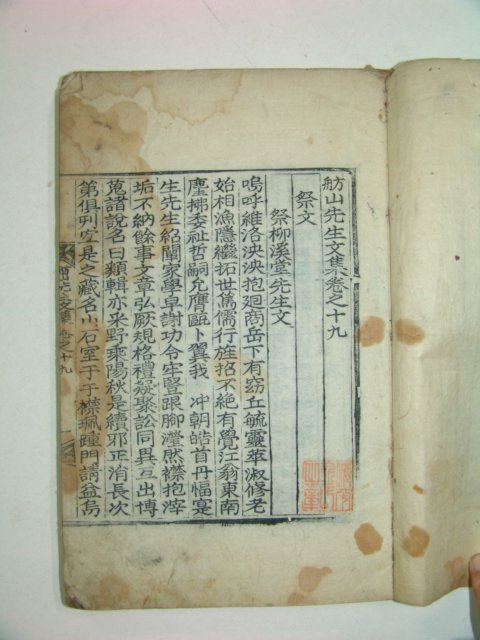 舫山先生文集卷之十九
祭文
祭柳溪堂先生文
嗚呼維洛泱泱抱廻商岳下有窈丘毓靈萃淑修老
始相漁隱繼拓世篤儒行旌招不絶有覺江翁東南
麈拂委祉哲嗣允膺甌卜翼我 冲朝皓首丹愊寔
生先生紹闡家學卓謝功令牢竪跟脚灑然襟抱滓
垢不納餘事文章弘厥規格禮疑聚訟同異互出博
蒐諸說名曰類輯亦采野乘陽秋是續邪正消長次
第俱列穹是之藏名小石室于于襟珮踵門請益烏
舫山先生文集 卷之十九 一